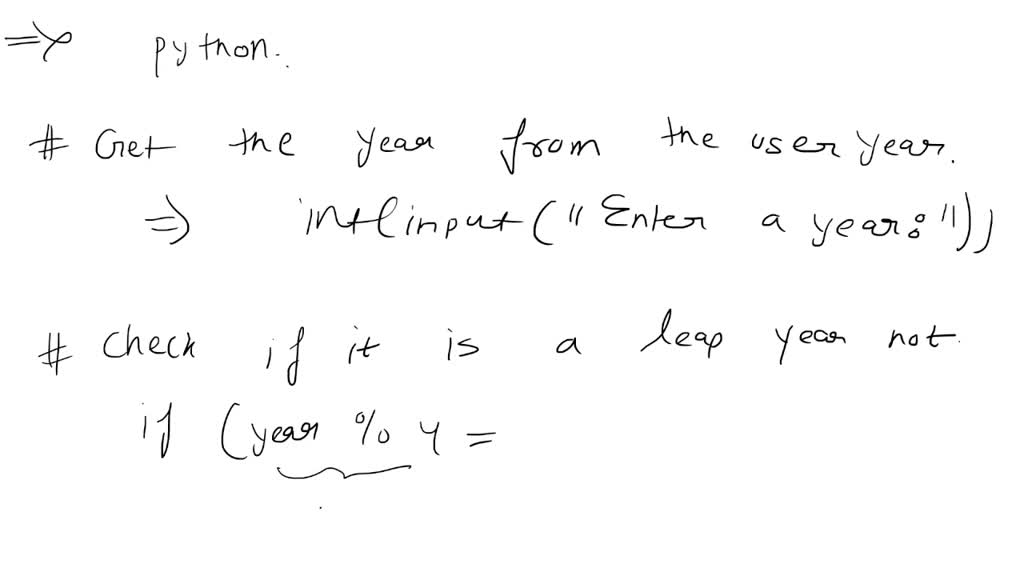 => python.
# Get the year from the user year.
=> int(input("Enter a year:"))
# check if it is a leap year not.
if (year % 4 =